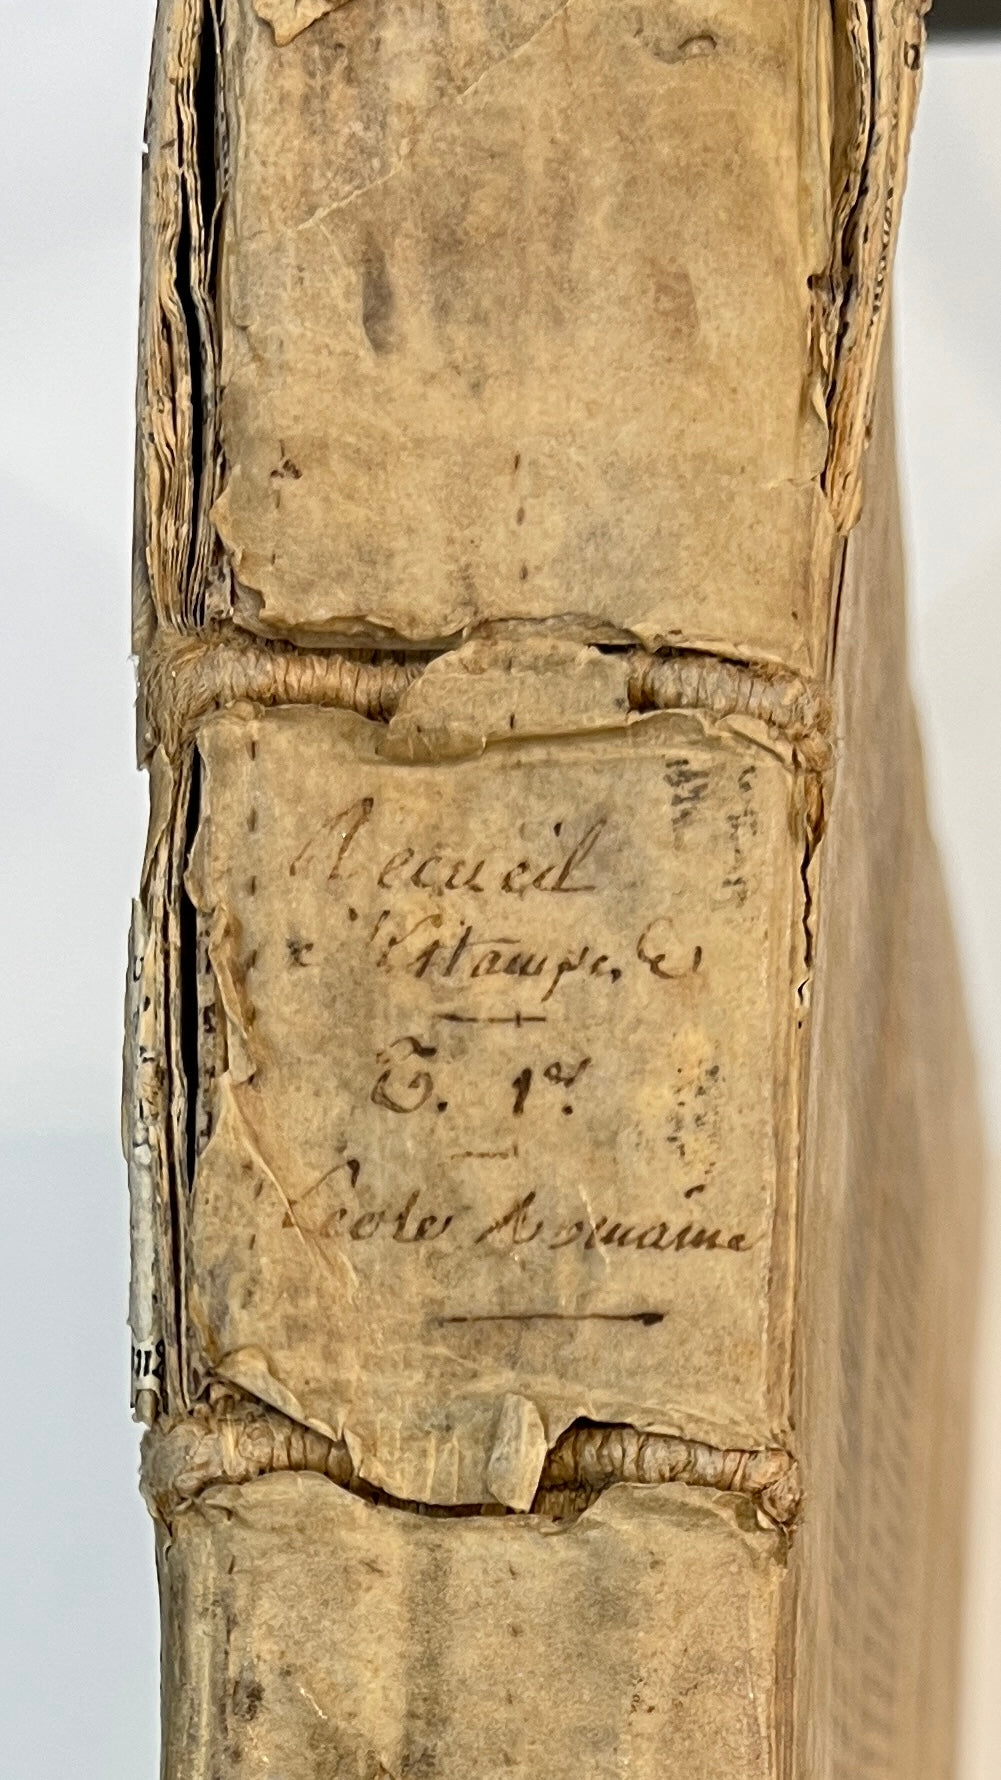 Recueil
d'Estampes
T. 1er
École Romaine